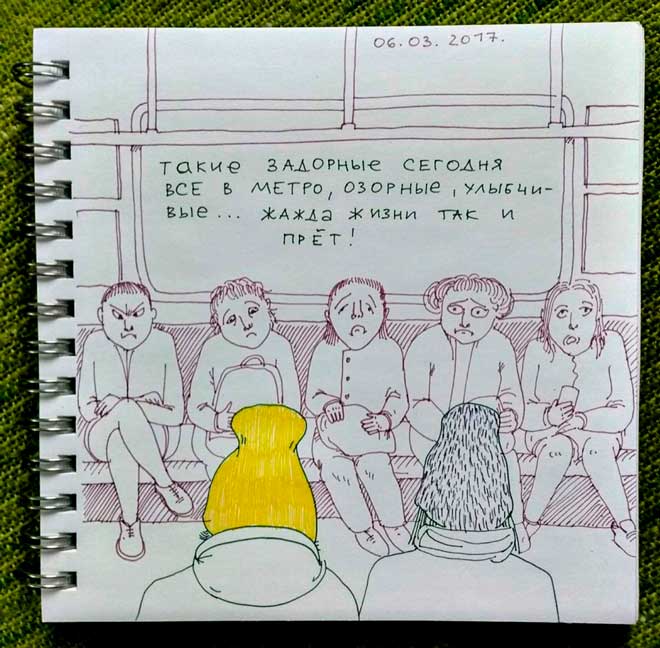 06.03.2017.
ТАКИЕ ЗАДОРНЫЕ СЕГОДНЯ
ВСЕ В МЕТРО, ОЗОРНЫЕ, УЛЫБЧИ-
ВЫЕ... ЖАЖДА ЖИЗНИ ТАК И
ПРЁТ!